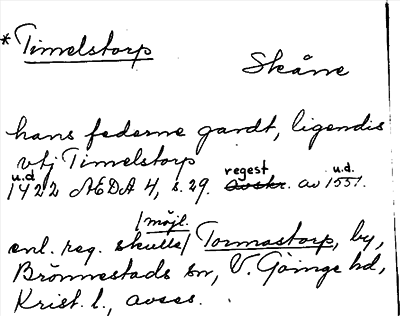 * Timelstorp
Skåne
hans federne gardt, ligendis
vtj Timelstorp
u.d. regest u.d.
1422 AEDA 4, s. 29. avskr. av 1551.
/möjl.
enl. reg. skulle/ Tormastorp, by,
Brönnestads sn, V. Göinge hd,
Krist. l., avses.